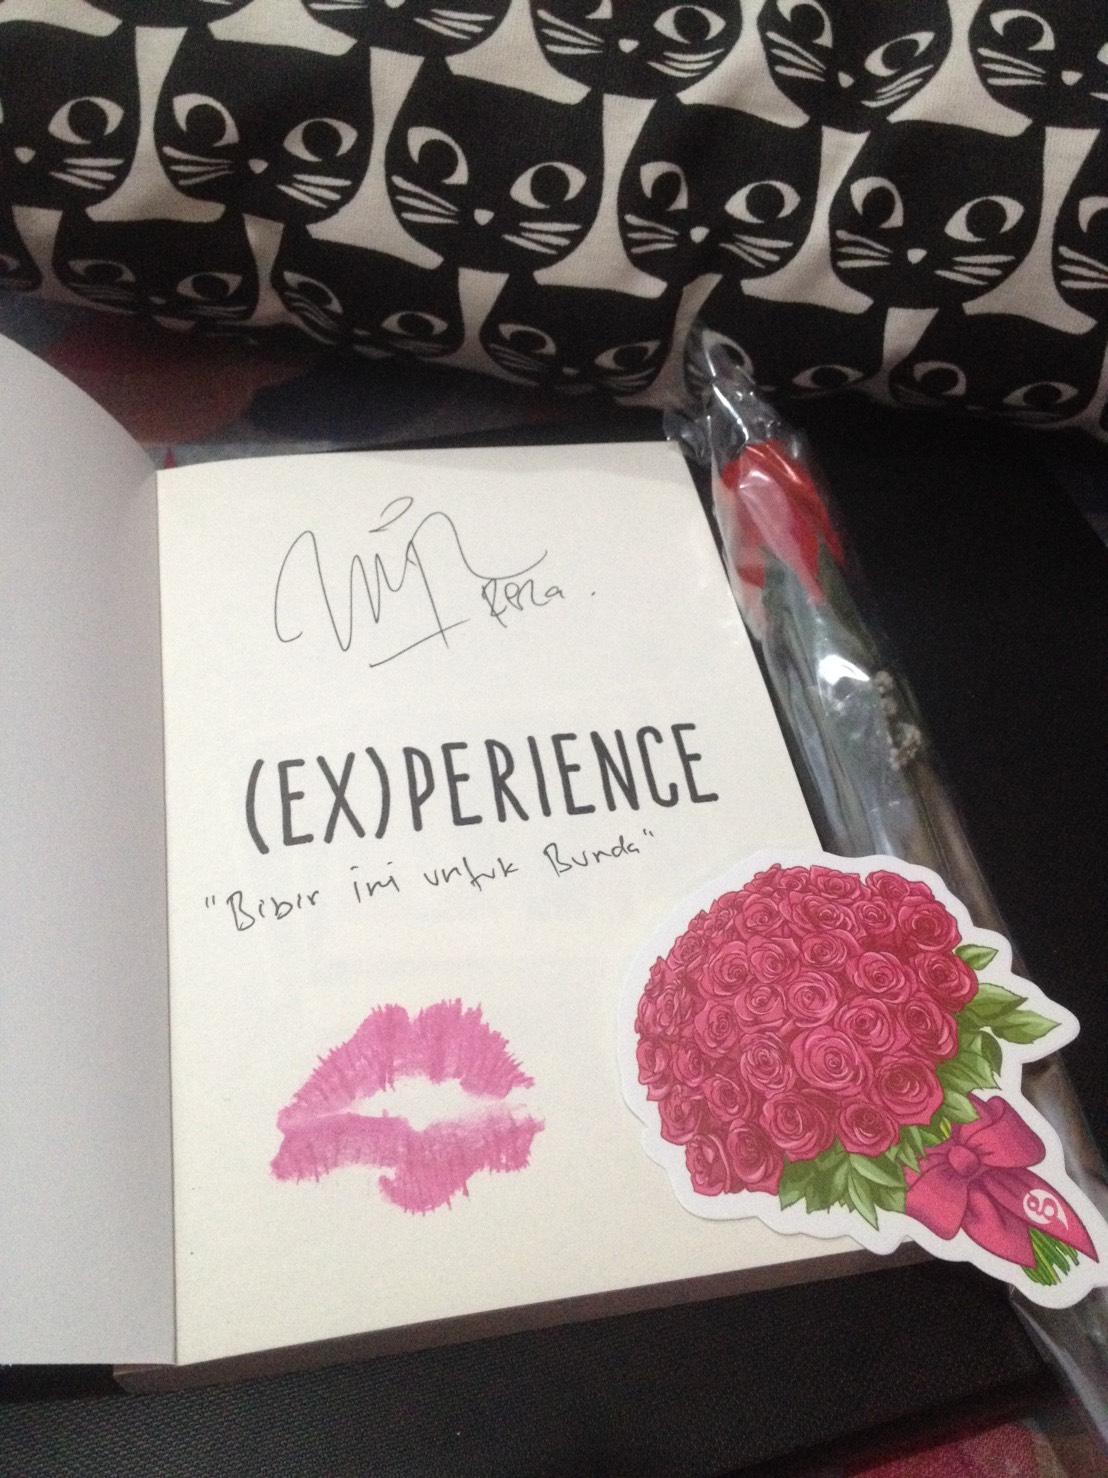 (EX)PERIENCE
"Bibir ini untuk Bunda"
g